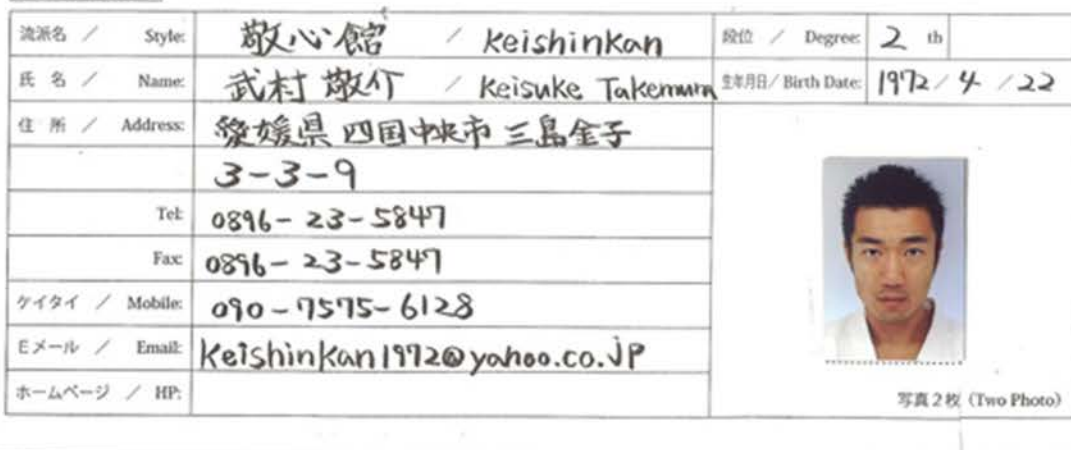 流派名 / Style: 敬心館 / Keishinkan 段位 / Degree: 2 th
氏 名 / Name: 武村 敬介 / Keisuke Takemura 生年月日 / Birth Date: 1972 / 4 / 22
住 所 / Address: 愛媛県 四国中央市 三島金子
3-3-9
Tel: 0896- 23-5847
Fax: 0896- 23-5847
ケイタイ / Mobile: 090-7575-6128
Eメール / Email: Keishinkan1972@yahoo.co.JP
ホームページ / HP:
写真2枚 (Two Photo)